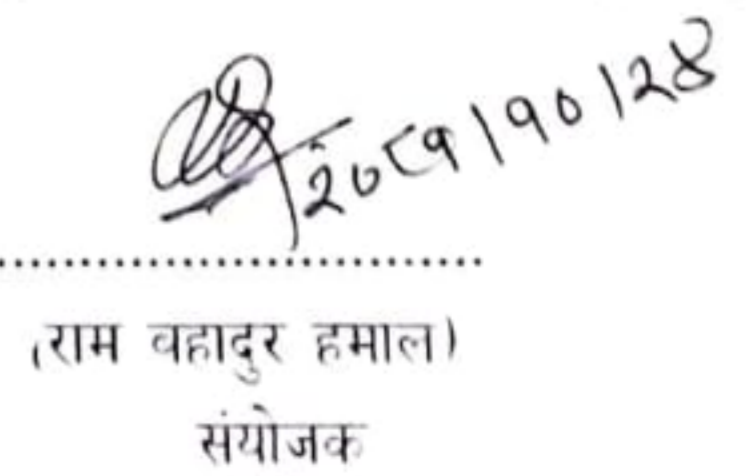 २०८१।१०।२४
(राम वहादुर हमाल)
संयोजक